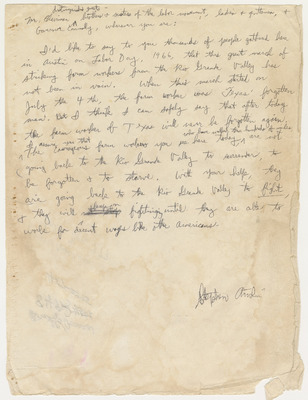 distinguished guests
Mr. Chairman, brothers & sisters of the labor movement, ladies & gentlemen, &
Governor Connally, wherever you are:
I'd like to say to you thousands of people gathered here
in Austin on Labor Day, 1966, that this great march of
striking farm workers from the Rio Grande Valley has
not been in vain. When this march started on
July the 4th, the farm worker was Texas' forgotten
man. But I think I can safely say that after today
the farm workers of Texas will never be forgotten again.
who have walked this hundreds of miles
The farm workers you see here today, are not
going back to the Rio Grande Valley to surrender, to
be forgotten & to starve. With your help, they
are going back to the Rio Grande Valley to fight,
& they will fighting until they are able to
work for decent wages like other Americans.